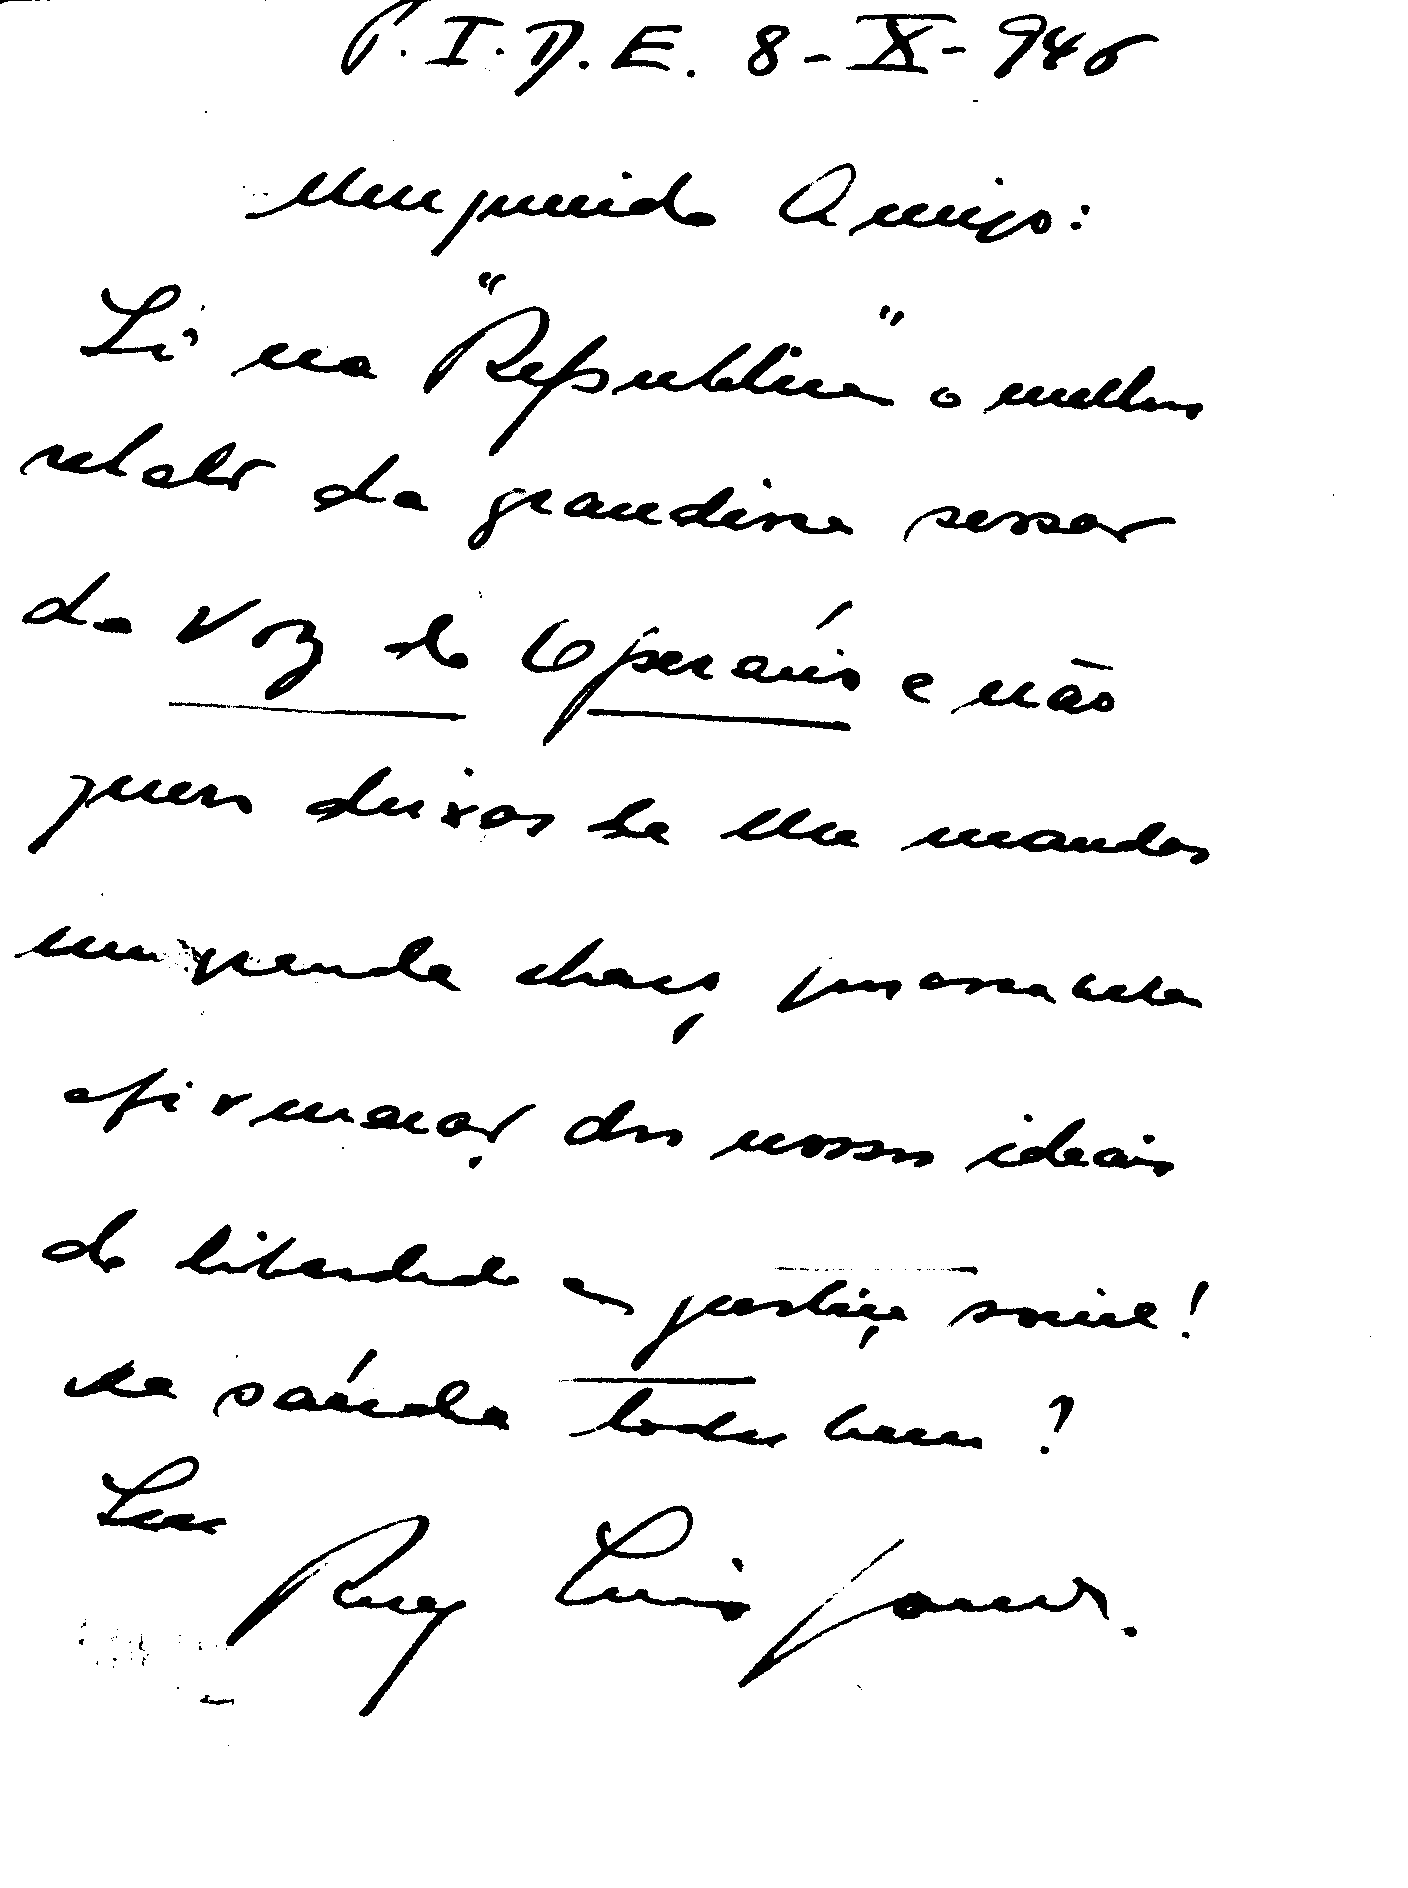 P.I.D.E. 8-X-946
Meu querido Amigo:
Li na "Republica" o melhor
relato da grandiosa sessão
da Voz do Operário e não
quero deixar de lhe mandar
um grande abraço, por essa bela
afirmação dos nossos ideais
de liberdade e justiça social!
De saúde todos bem?
Seu
Ruy Luis Gomes.